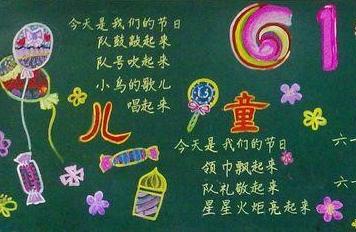 今天是我们的节日
队鼓敲起来
队号吹起来
小鸟的歌儿
唱起来
61
儿童
今天是我们的节日
领巾飘起来
队礼敬起来
星星火炬亮起来
六一
六一